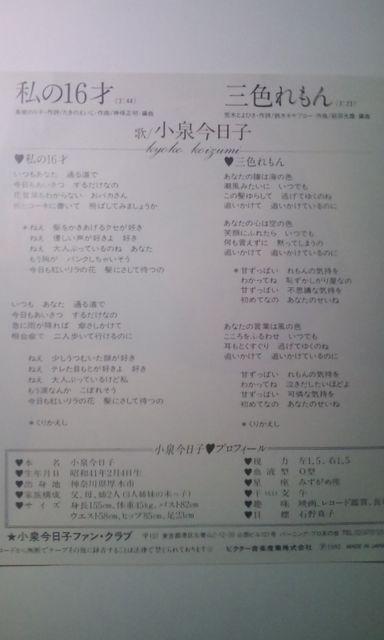 私の16才 (3:44)
三色れもん (3:23)
歌/小泉今日子
kyoko koizumi
♥私の16才
いつもあなた 通る道で
今日もあいさつ するだけなの
花言葉もわからない おバカさん
飛ばしてみましょうか
*ねえ 髪をかきあげるクセが好き
ねえ 優しい声が好きよ 好き
ねえ 大人ぶっているのね あなた
もう胸が パンクしちゃいそう
今日も紅いリラの花 髪にさして待つの
いつも あなた 通る道で
今日もあいさつ するだけなの
急に雨が降れば 傘さしかけて
相合傘で 二人歩いて行けるのに
ねえ 少しうつむいた顔が好き
ねえ テレた目もとが好きよ 好き
ねえ 大人ぶっているけど私
もう涙なんか こぼれそう
今日も紅いリラの花 髪にさして待つの
*くりかえし
♥三色れもん
あなたの瞳は海の色
潮風みたいに いつでも
この髪ゆらして 逃げてゆくのね
追いかけて 追いかけているのに
あなたの心は空の色
笑顔にふれたら いつでも
何も言えずに 黙ってしまうの
追いかけて 追いかけているのに
*甘ずっぱい れもんの気持を
わかってね 恥ずかしがり屋なの
甘ずっぱい 不思議な気持を
初めてなの あなたのせいね
あなたの言葉は風の色
こころをふるわせ いつでも
耳もとくすぐり 逃げてゆくのね
追いかけて 追いかけているのに
甘ずっぱい れもんの気持を
わかってね 泣きだしたいほどよ
甘ずっぱい 可憐な気持を
初めてなの あなたのせいね
*くりかえし
小泉今日子♥プロフィール
♥本名 小泉今日子
♥生年月日 昭和41年2月4日生
♥出身地 神奈川県厚木市
♥家族構成 父、母、姉2人(3人姉妹の末っ子)
♥サイズ 身長155cm、体重45kg、バスト82cm
ウエスト58cm、ヒップ85cm、足23cm
♥視力 左1.5、右1.5
♥血液型 O型
♥星座 みずがめ座
♥干支 午
♥趣味 映画、レコード鑑賞、
♥目標 石野真子
★小泉今日子ファン・クラブ
ビクター音楽産業株式会社 Ⓟ1982 MADE IN JAPAN